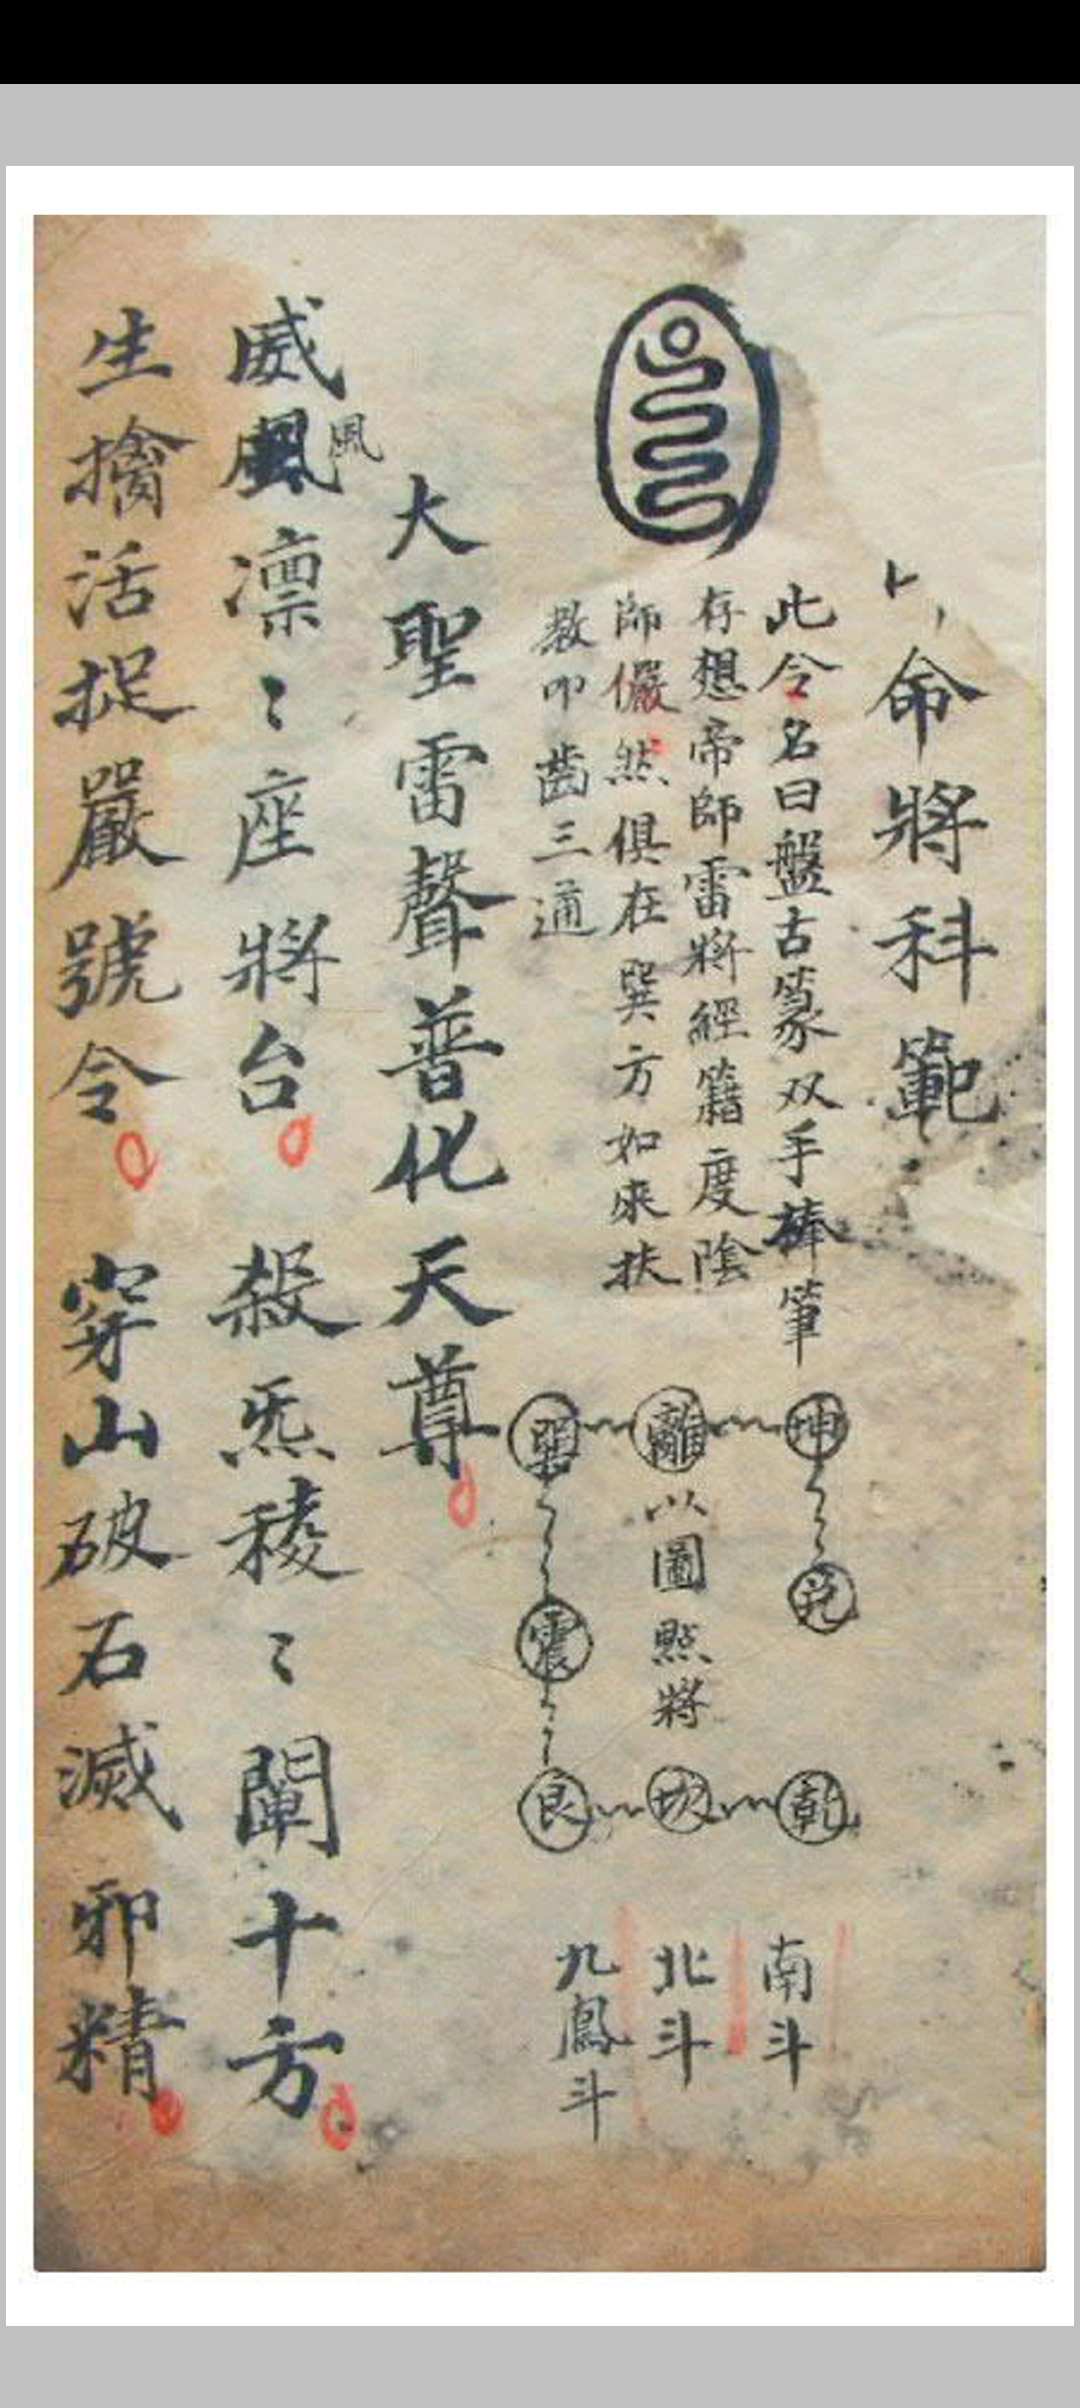 命將科範
此令名曰盤古篆双手捧筆
存想帝師雷將經籍度陰
師儼然俱在巽方如來扶
教叩齒三通
坤 離 巽
兌 震
乾 坎 艮
以圖點將
南斗
北斗
九鳳斗
大聖雷聲普化天尊
威風風凛〻座將台 殺炁稜〻闡十方
生擒活捉嚴號令 穿山破石滅邪精